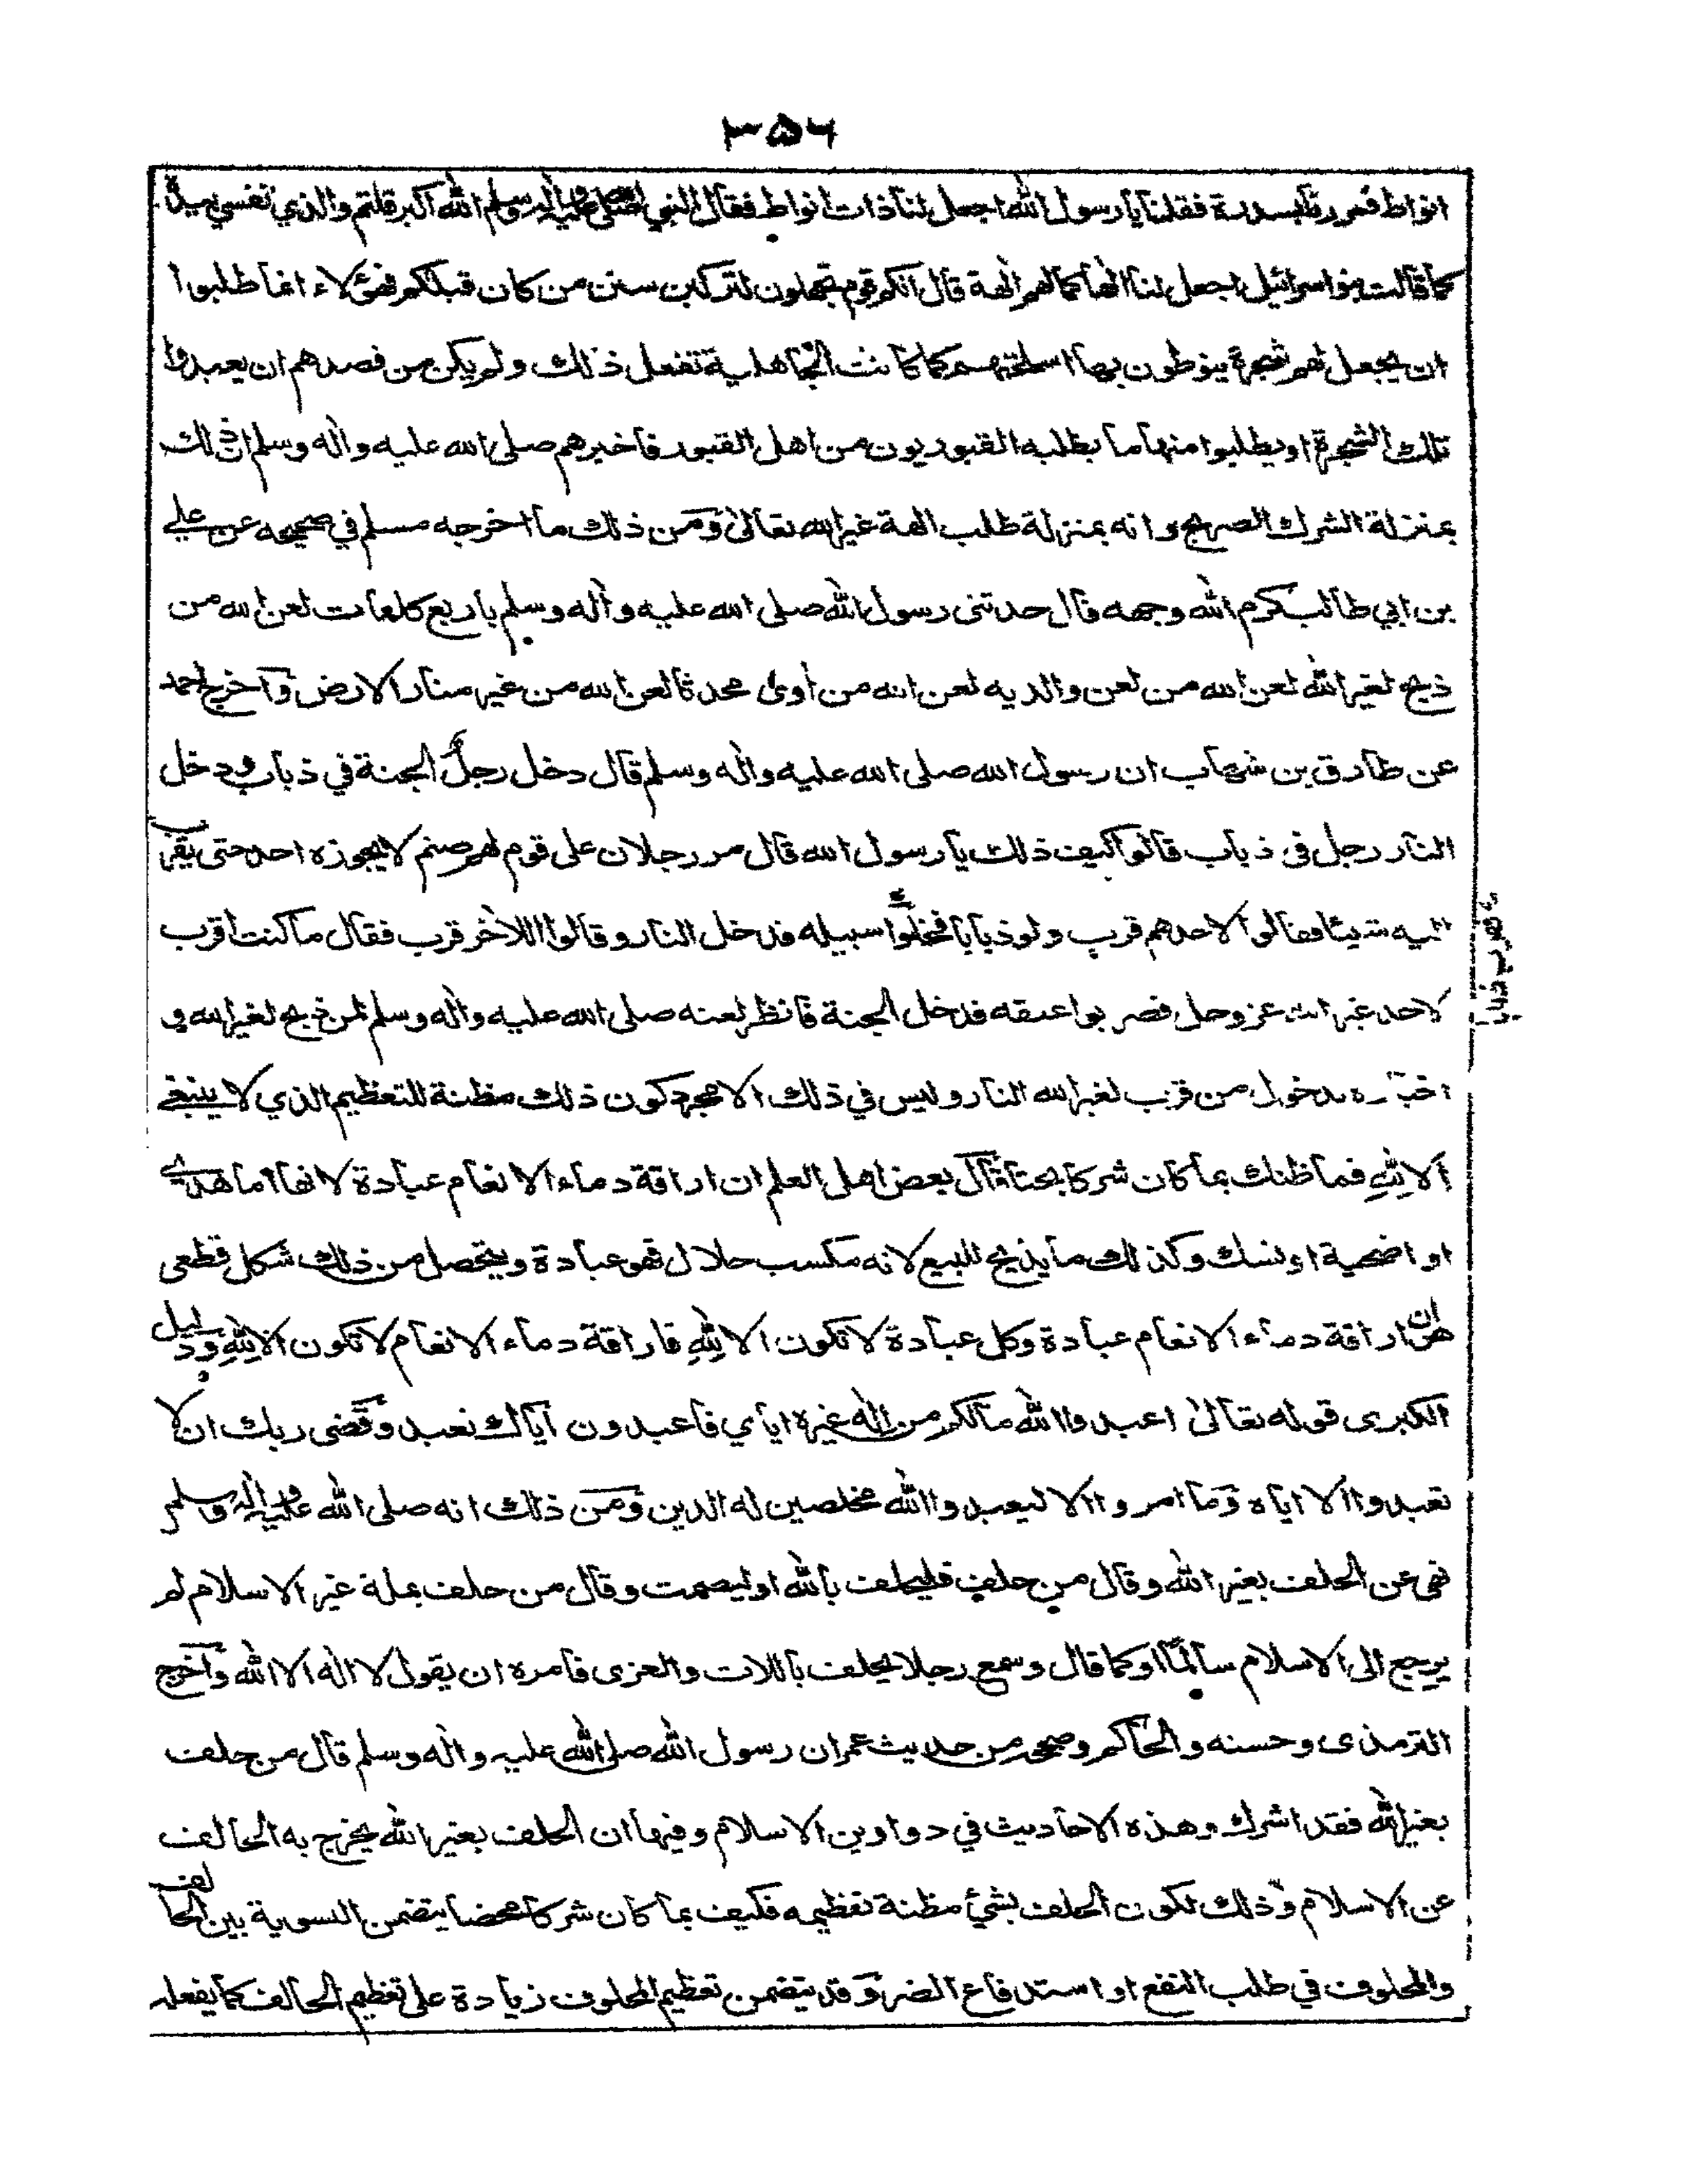 ٣٥٦
انواط فمررنا بسدرة فقلنا يا رسول الله اجعل لنا ذات انواط فقال النبي صلى الله عليه واله وسلم الله اكبر قلتم والذي نفسي بيده
كما قالت بنو اسرائيل اجعل لنا الها كما لهم الهة قال انكم قوم تجهلون لتركبن سنن من كان قبلكم فهؤلاء انما طلبوا
ان يجعل لهم شجرة ينوطون بها اسلحتهم كما كانت الجاهلية تفعل ذلك ولم يكن من قصدهم ان يعبدوا
تلك الشجرة او يطلبوا منها ما يطلبه القبوريون من اهل القبور فاخبرهم صلى الله عليه واله وسلم ان ذلك
بمنزلة الشرك الصريح وانه بمنزلة طلب الهة غير الله تعالى ومن ذلك ما اخرجه مسلم في صحيحه عن علي
بن ابي طالب كرم الله وجهه قال حدثني رسول الله صلى الله عليه واله وسلم باربع كلمات لعن الله من
ذبح لغير الله لعن الله من لعن والديه لعن الله من أوى محدثا لعن الله من غير منار الارض واخرج احمد
عن طارق بن شهاب ان رسول الله صلى الله عليه واله وسلم قال دخل رجل الجنة في ذباب ودخل
النار رجل في ذباب قالوا كيف ذلك يا رسول الله قال مر رجلان على قوم لهم صنم لا يجوزه احد حتى يقرب
اليه شيئا فقالوا لاحدهم قرب ولو ذبابا فخلوا سبيله فدخل النار وقالوا للاخر قرب فقال ما كنت اقرب
لاحد غير الله عز وجل فضربوا عنقه فدخل الجنة فانظر لعنه صلى الله عليه واله وسلم لمن ذبح لغير الله و
اخباره بدخول من قرب لغير الله النار وليس في ذلك الا مجرد كون ذلك مظنة للتعظيم الذي لا ينبغي
الا لله فما ظنك بما كان شركا بحتا قال بعض اهل العلم ان اراقة دماء الانعام عبادة لانها اما هدي
او اضحية او نسك وكذلك ما يذبح للبيع لانه مكسب حلال فهو عبادة ويتحصل من ذلك شكل قطعي
هو ان اراقة دماء الانعام عبادة وكل عبادة لا تكون الا لله فاراقة دماء الانعام لا تكون الا لله ودليل
الكبرى قوله تعالى اعبدوا الله مالكم من اله غيره اياي فاعبدون اياك نعبد وقضى ربك ان لا
تعبدوا الا اياه وما امروا الا ليعبدوا الله مخلصين له الدين ومن ذلك انه صلى الله عليه واله وسلم
نهى عن الحلف بغير الله وقال من حلف فليحلف بالله او ليصمت وقال من حلف بملة غير الاسلام لم
يرجع الى الاسلام سالما او كما قال وسمع رجلا يحلف باللات والعزى فامره ان يقول لا اله الا الله واخرج
الترمذى وحسنه والحاكم وصححه من حديث عمر ان رسول الله صلى الله عليه واله وسلم قال من حلف
بغير الله فقد اشرك وهذه الاحاديث في دواوين الاسلام وفيها ان الحلف بغير الله يخرج به الحالف
عن الاسلام وذلك لكون الحلف بشئ مظنة تعظيمه فكيف بما كان شركا محضا يتضمن التسوية بين الخالق
والمخلوق في طلب النفع او استدفاع الضر وقد يتضمن تعظيم المخلوق زيادة على تعظيم الخالق كما يفعله